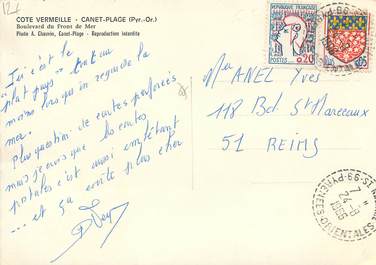 COTE VERMEILLE - CANET-PLAGE (Pyr.-Or.)
Boulevard du Front de Mer
Photo A. Chauvin, Canet-Plage - Reproduction interdite
Ici c'est le
"plat pays"
même lorsqu'on regarde la
mer.
Plus question de cartes perforées
mais je crois que les cartes
postales c'est aussi embêtant
... et ça coûte plus cher
POSTES
0,20
0,05
Mr ANEL Yves
118 Bd St Marceaux
51 REIMS
66 PYRENEES-ORIENTALES
7 H
24-8
1966